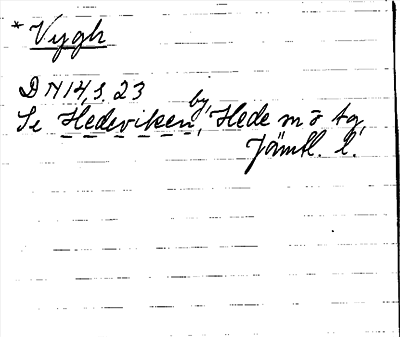 * Vygh
DN 14, s. 23
Se Hedeviken, by, Hede sn o tg,
Jämtl. l.